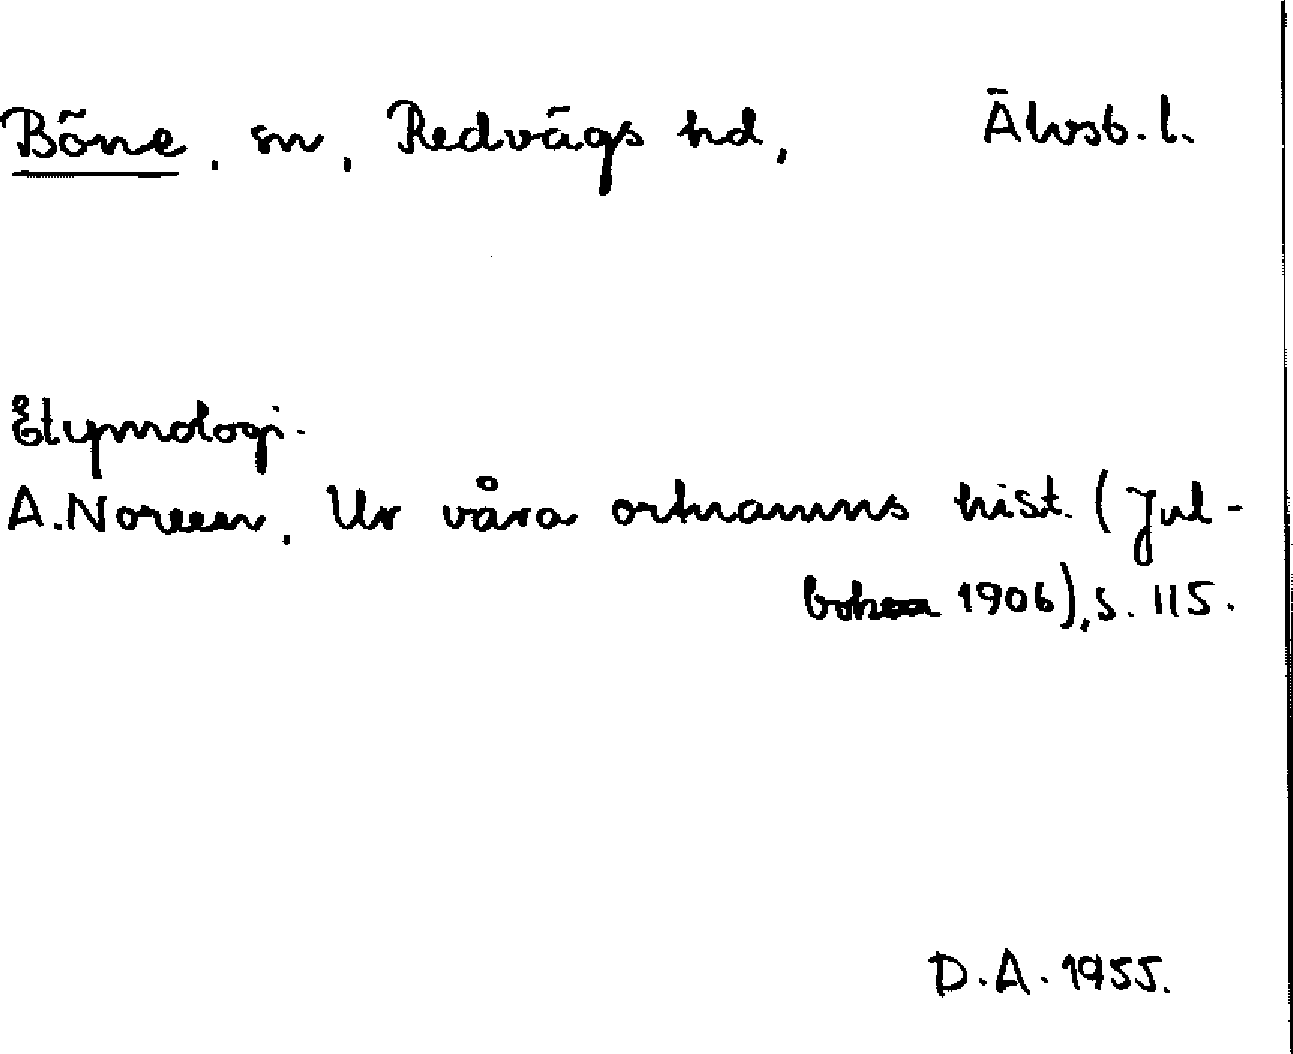 Böne, sn, Redvägs hd, Älvsb. l.
Etymologi.
A. Noreen, Ur våra ortnamns hist. (Jul-
boken 1906), s. 115.
D. A. 1955.